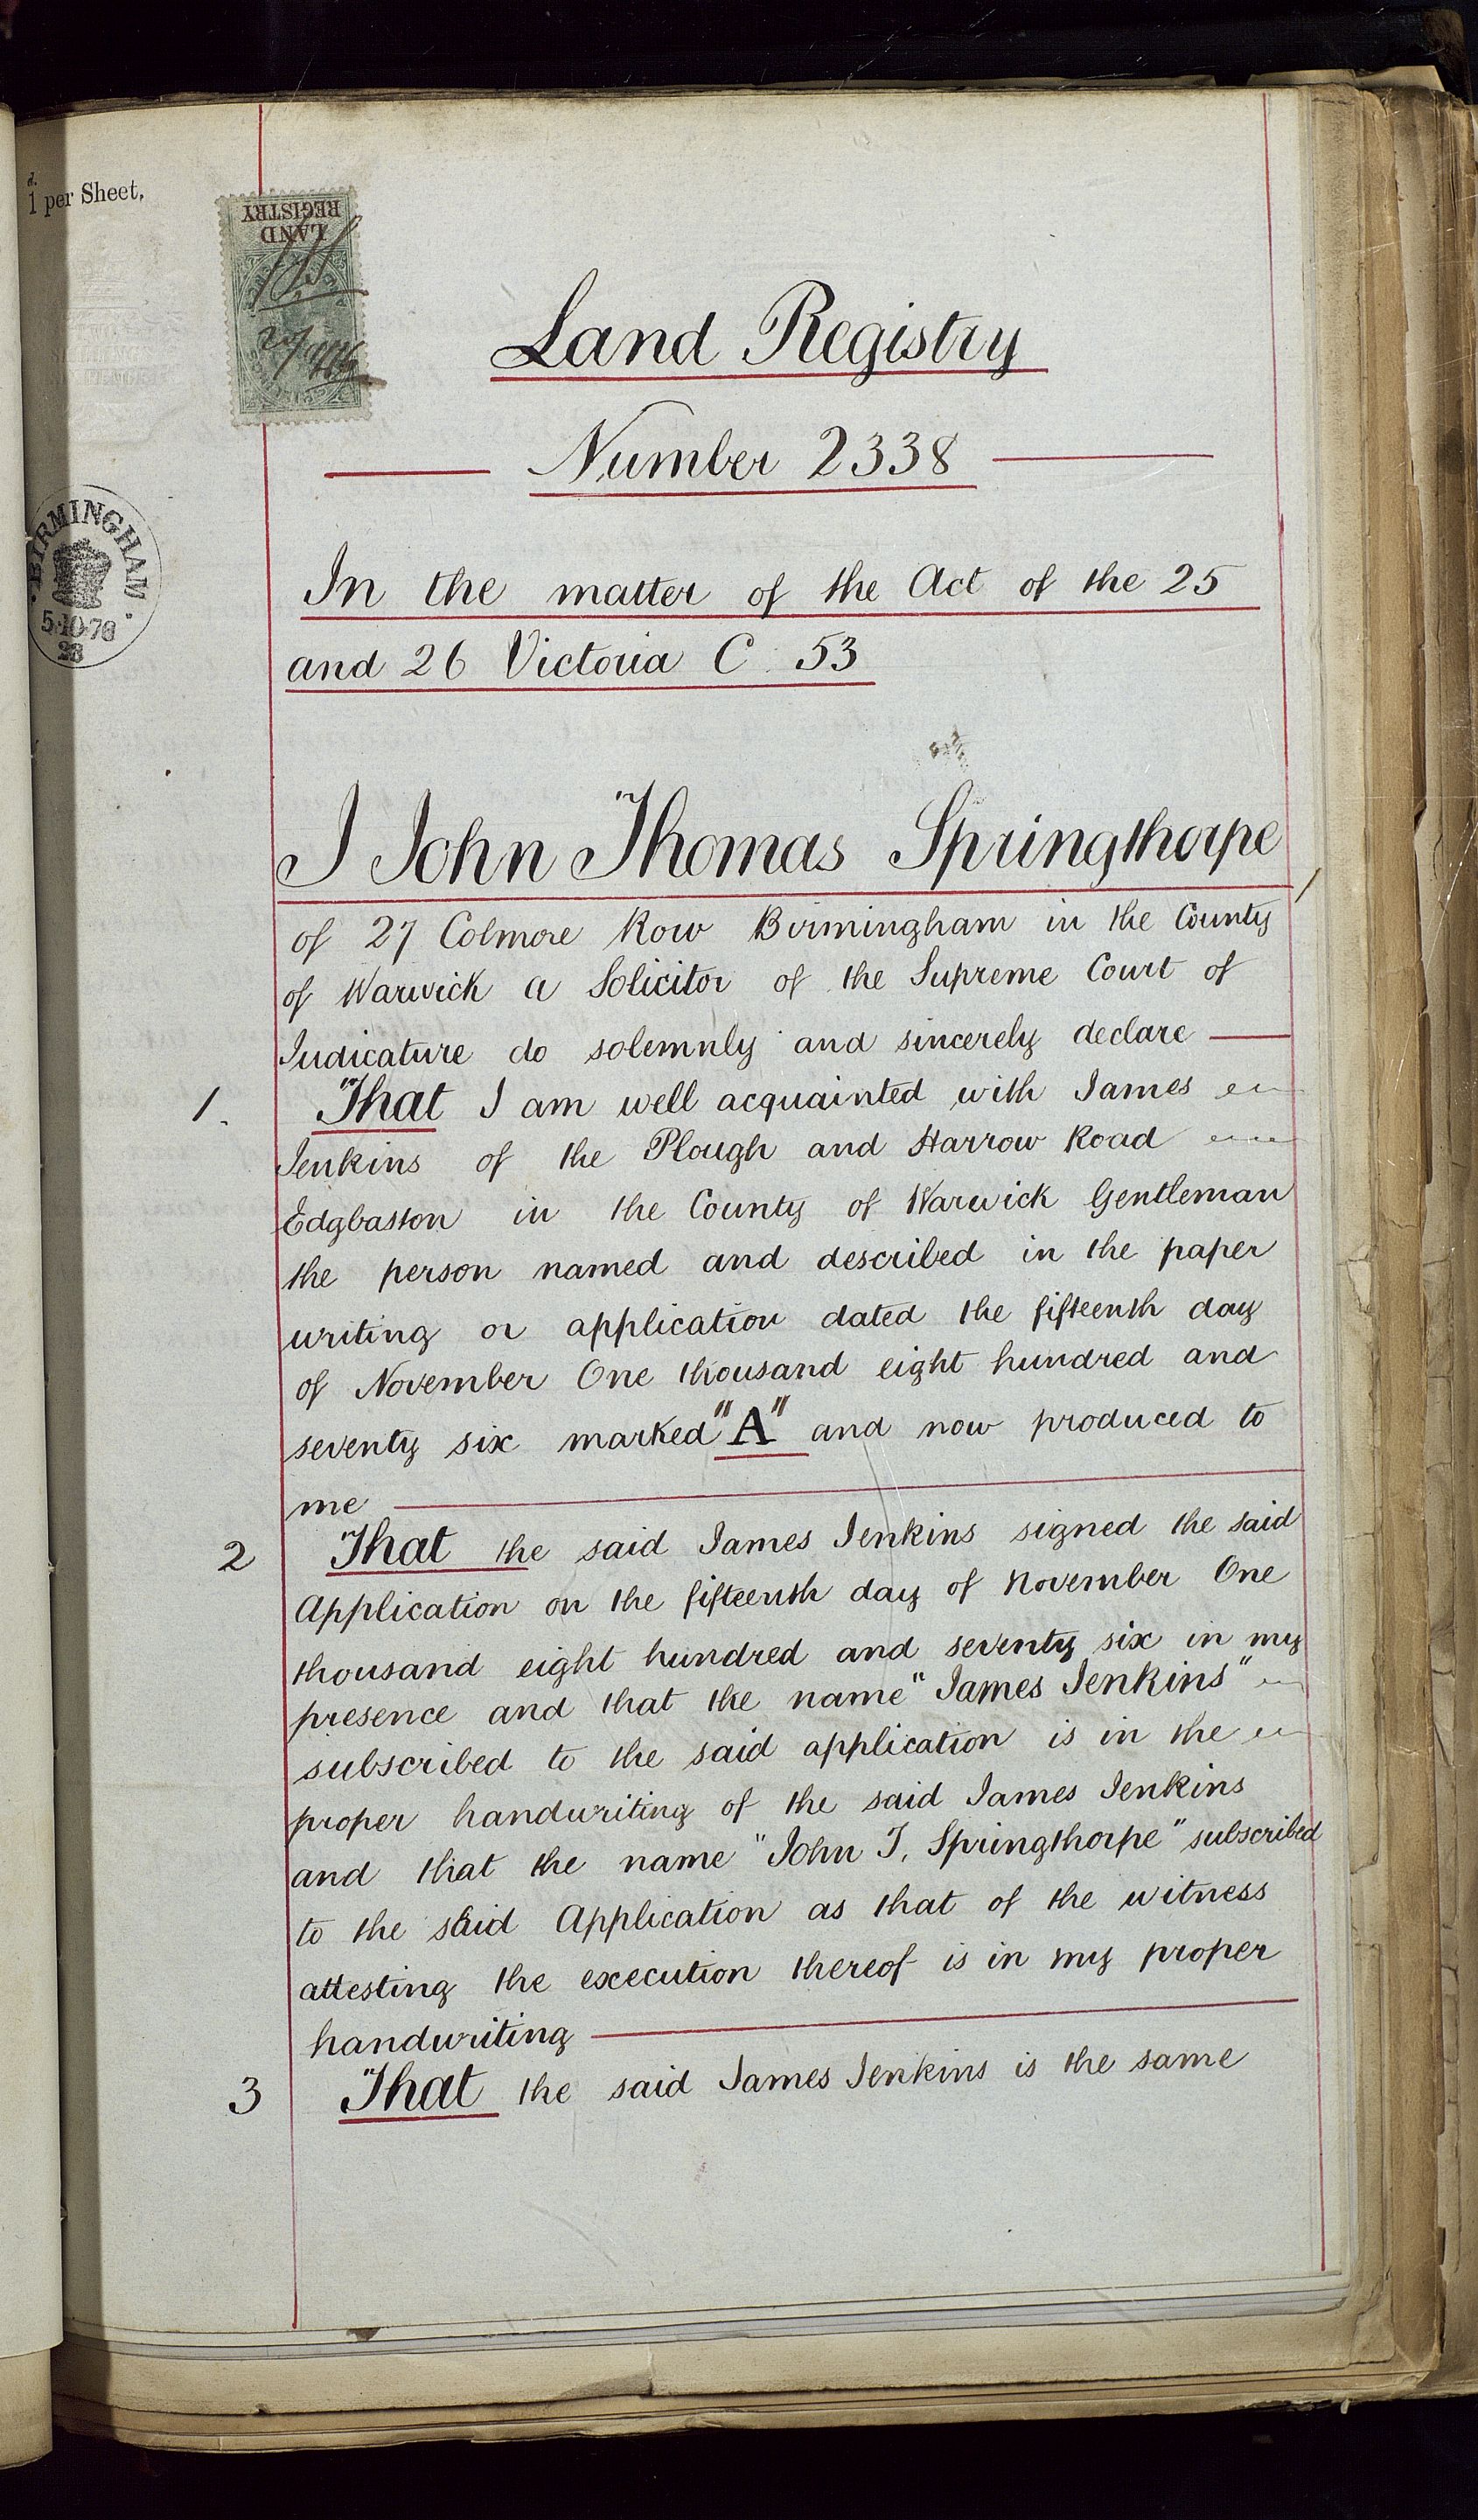 d.
1 per Sheet,
LAND
REGISTRY
BIRMINGHAM
5·10·76
23
Land Registry
Number 2338
In the matter of the Act of the 25
and 26 Victoria C. 53
I John Thomas Springthorpe
of 27 Colmore Row Birmingham in the County
of Warwick a Solicitor of the Supreme Court of
Judicature do solemnly and sincerely declare
1. That I am well acquainted with James
Jenkins of the Plough and Harrow Road
Edgbaston in the County of Warwick Gentleman
the person named and described in the paper
writing or application dated the fifteenth day
of November One thousand eight hundred and
seventy six marked "A" and now produced to
me
2 That the said James Jenkins signed the said
Application on the fifteenth day of November One
thousand eight hundred and seventy six in my
presence and that the name "James Jenkins"
subscribed to the said application is in the
proper handwriting of the said James Jenkins
and that the name "John T. Springthorpe" subscribed
to the said Application as that of the witness
attesting the execution thereof is in my proper
handwriting
3 That the said James Jenkins is the same